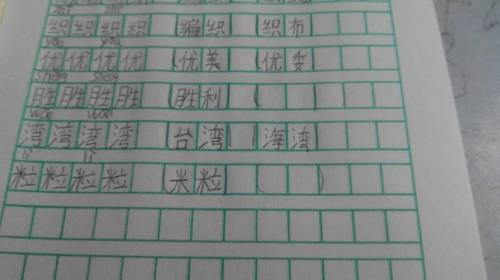 织织织织 (编织) (织布
yōu yōu
优优优优 (优美) (优委
shèng shèng
胜胜胜胜 (胜利) (
wān wān
湾湾湾湾 (台湾) (海湾
lì lì
粒粒粒粒 (米粒) ( )